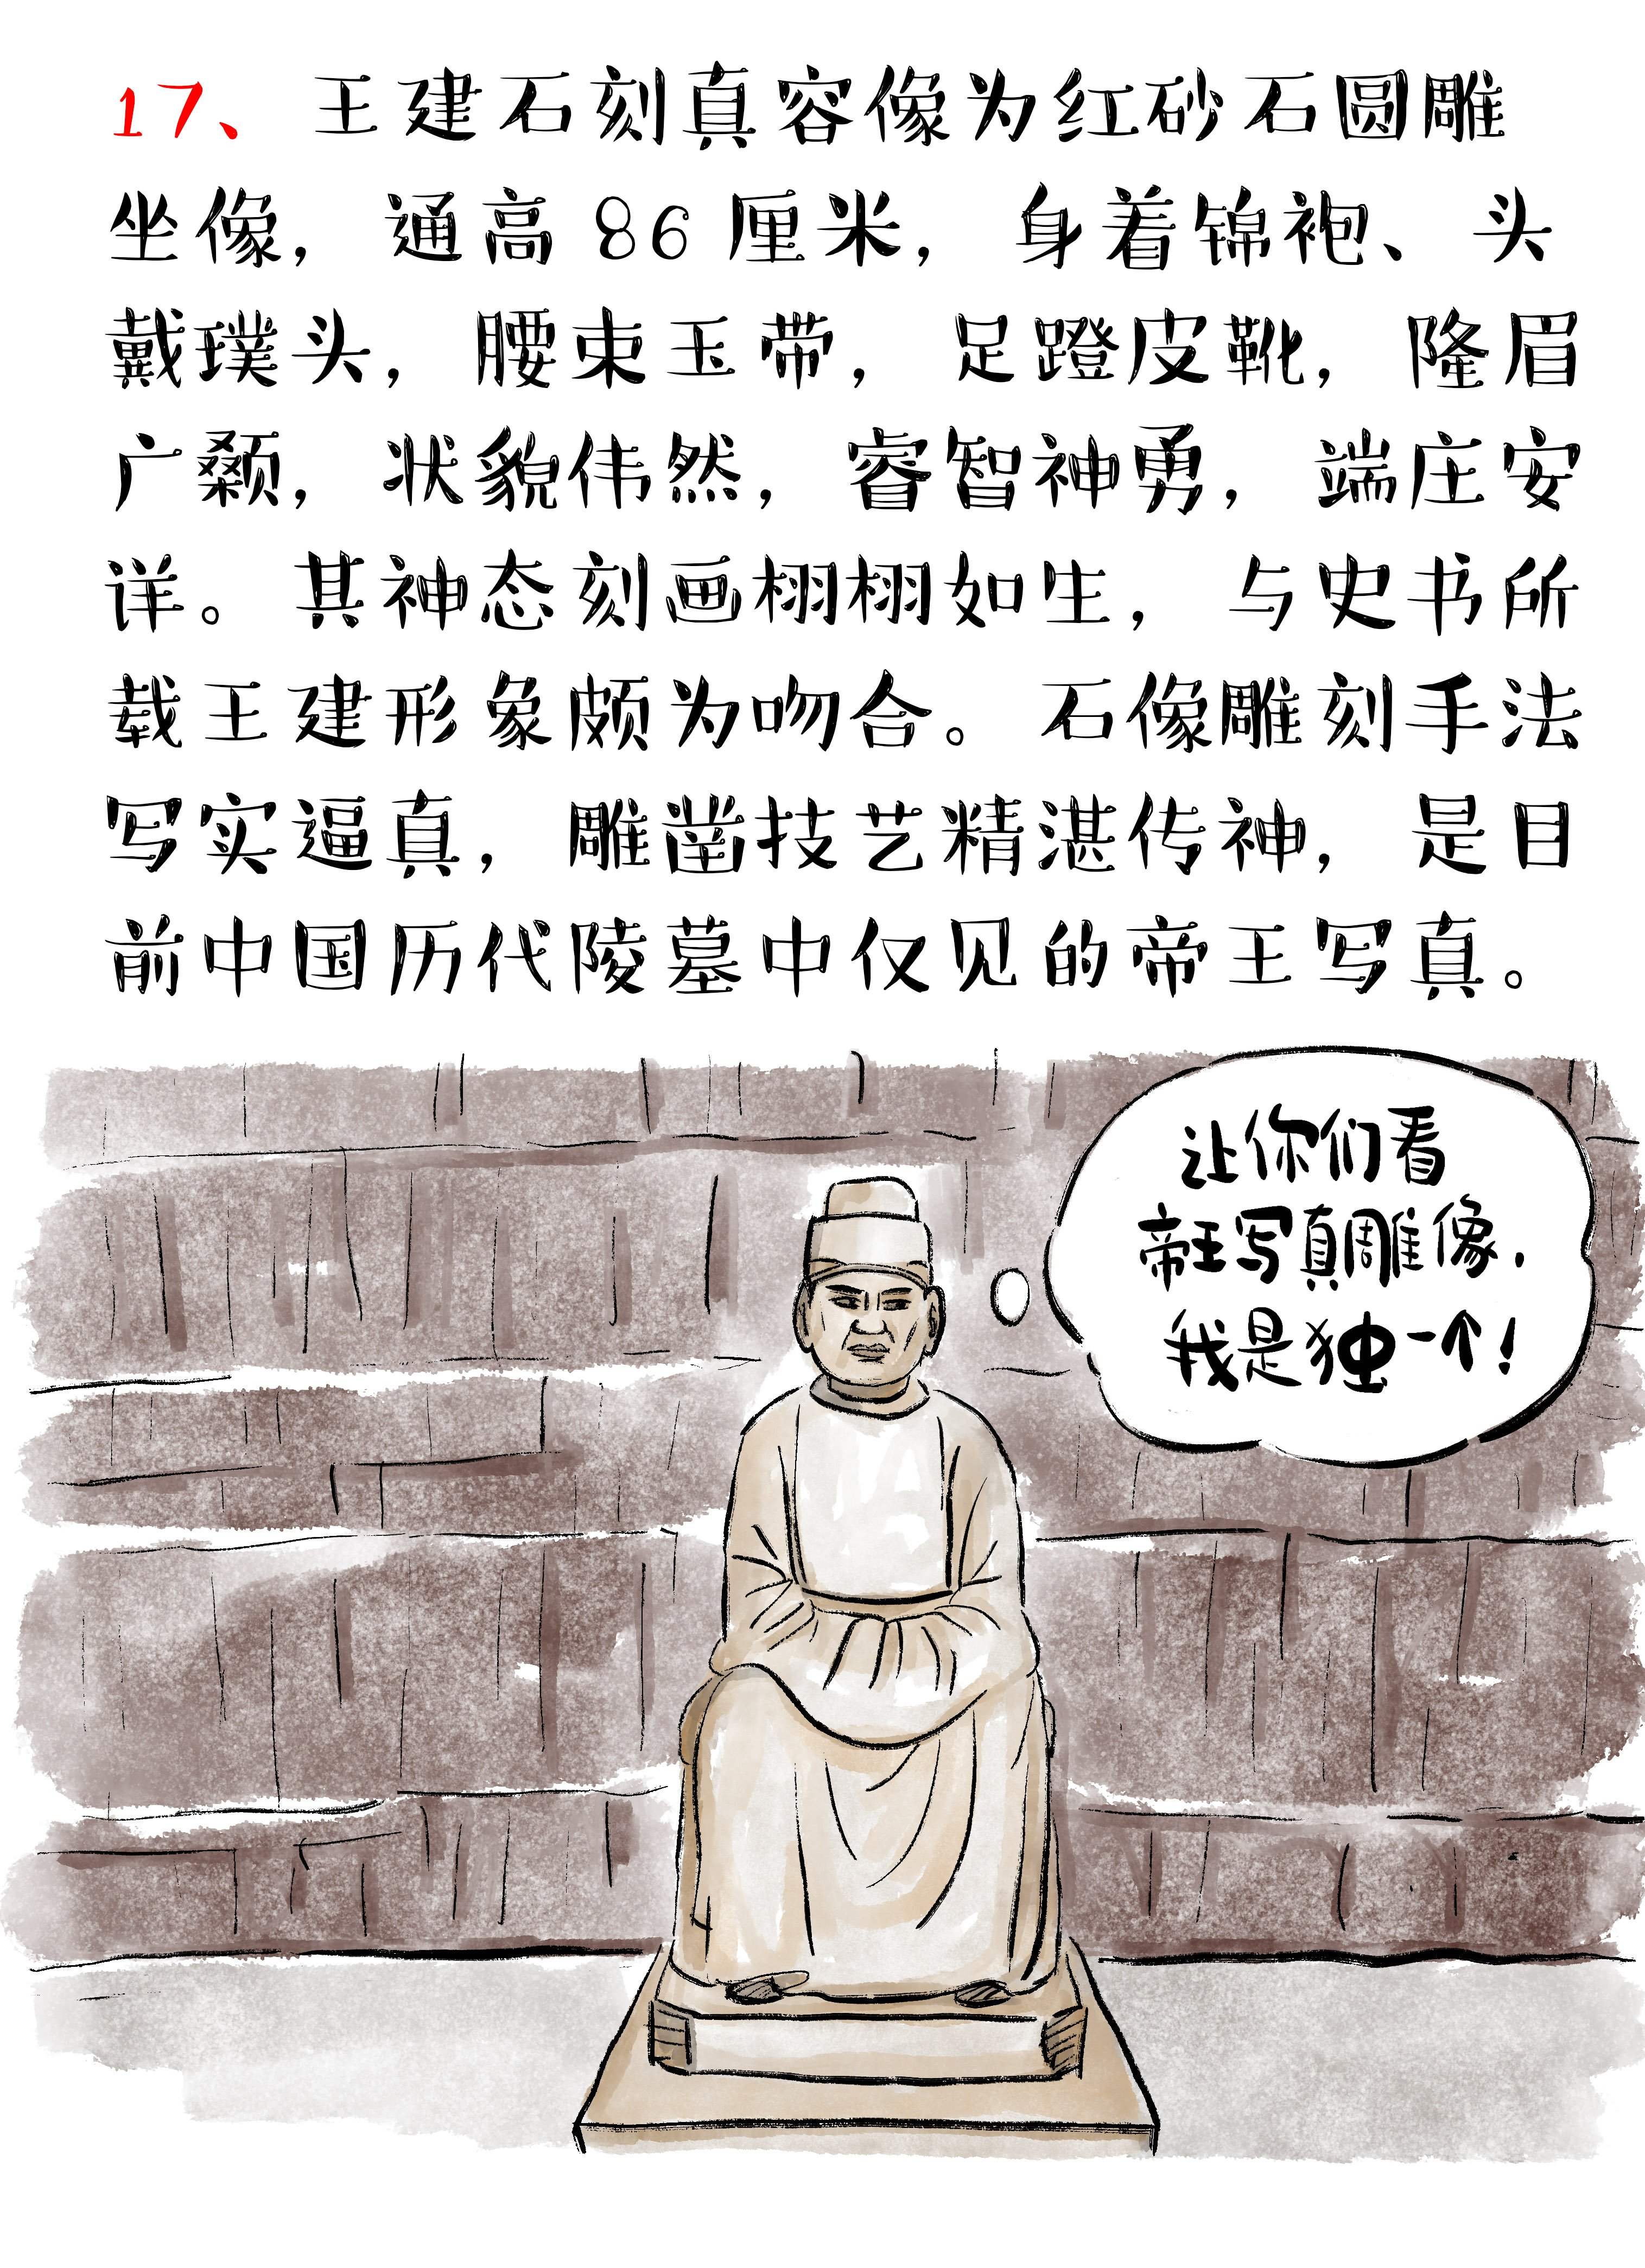 17、王建石刻真容像为红砂石圆雕
坐像，通高86厘米，身着锦袍、头
戴璞头，腰束玉带，足蹬皮靴，隆眉
广颡，状貌伟然，睿智神勇，端庄安
详。其神态刻画栩栩如生，与史书所
载王建形象颇为吻合。石像雕刻手法
写实逼真，雕凿技艺精湛传神，是目
前中国历代陵墓中仅见的帝王写真。
让你们看
帝王写真雕像，
我是独一个！